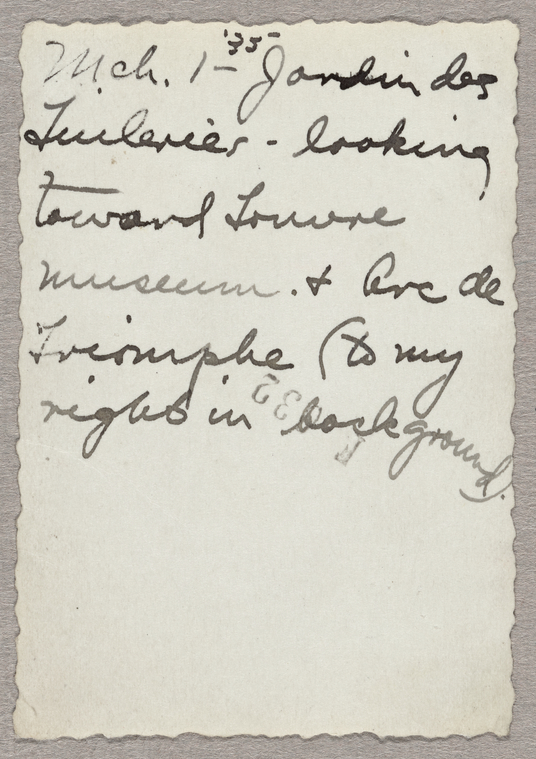 Mch. 1- '35- Jardin des
Tuileries - looking
toward Louvre
museum. & Arc de
Triomphe (to my
right in background).